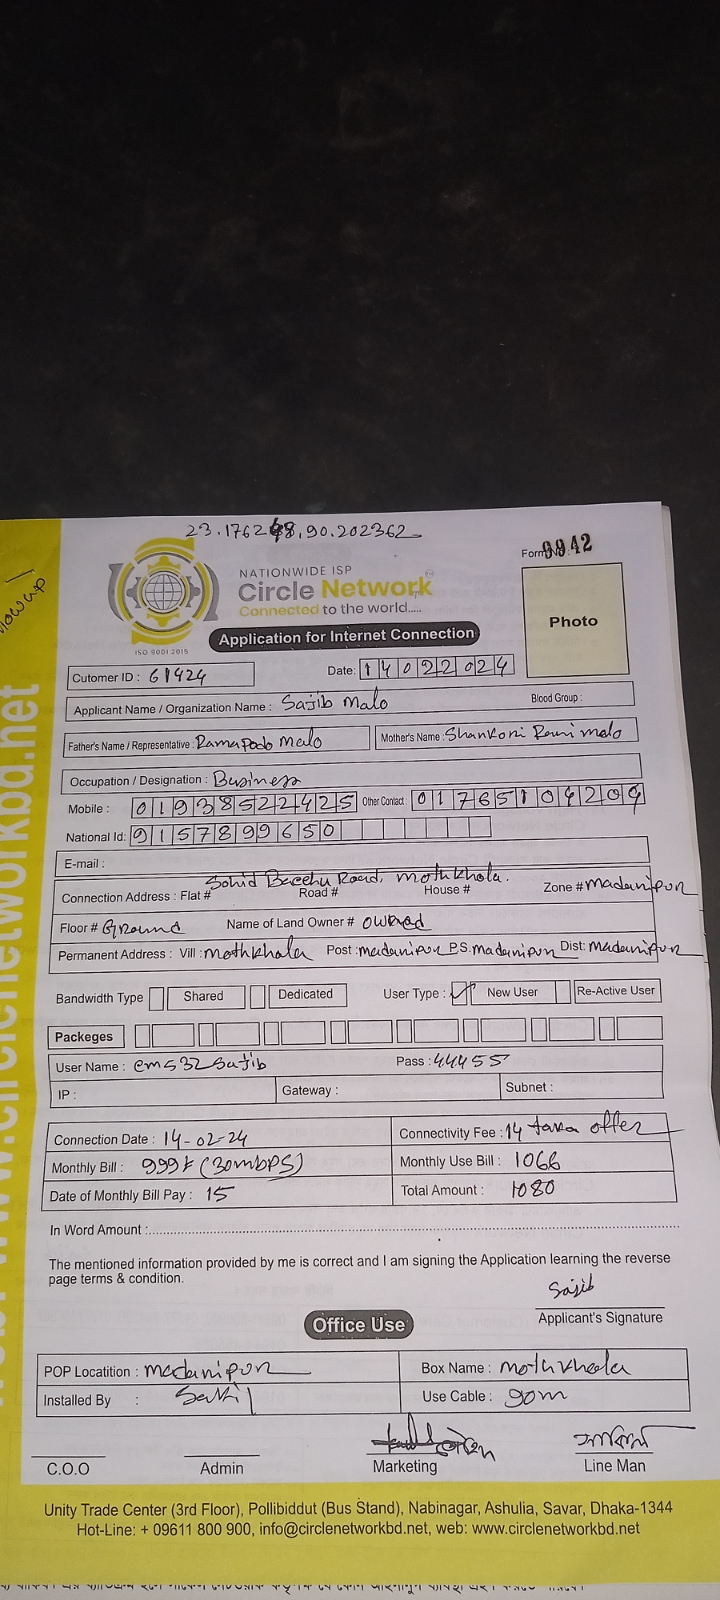 23.176248,90.202362
Form No: 9942
NATIONWIDE ISP
Circle Network
Connected to the world.....
ISO 9001:2015
Application for Internet Connection
Photo
Cutomer ID : 61424
Date: 14022024
Applicant Name / Organization Name : Sajib Malo
Blood Group :
Father's Name / Representative : Ramapado Malo
Mother's Name : Shankori Rani malo
Occupation / Designation : Business
Mobile : 01938522425 Other Contact : 01765104204
National Id: 9157899650
E-mail :
Sohid Bacchu Road, mothkhola.
Connection Address : Flat # Road # House # Zone # madaripur
Floor # Ground Name of Land Owner # owned
Permanent Address : Vill : mothkhala Post : madaripur P.S. madaripur Dist: Madaripur
Bandwidth Type Shared Dedicated User Type : ✓ New User Re-Active User
Packeges
User Name : cms32sajib Pass : 44455
IP : Gateway : Subnet :
Connection Date : 14-02-24 Connectivity Fee : 14 taka offer
Monthly Bill : 999৳ (30mbps) Monthly Use Bill : 1066
Date of Monthly Bill Pay : 15 Total Amount : 1080
In Word Amount :
The mentioned information provided by me is correct and I am signing the Application learning the reverse
page terms & condition.
Sajib
Applicant's Signature
Office Use
POP Locatition : madaripur Box Name : mothkhola
Installed By : Sakil Use Cable : 90m
C.O.O Admin Marketing Line Man
Unity Trade Center (3rd Floor), Pollibiddut (Bus Stand), Nabinagar, Ashulia, Savar, Dhaka-1344
Hot-Line: + 09611 800 900, info@circlenetworkbd.net, web: www.circlenetworkbd.net
www.circlenetworkbd.net